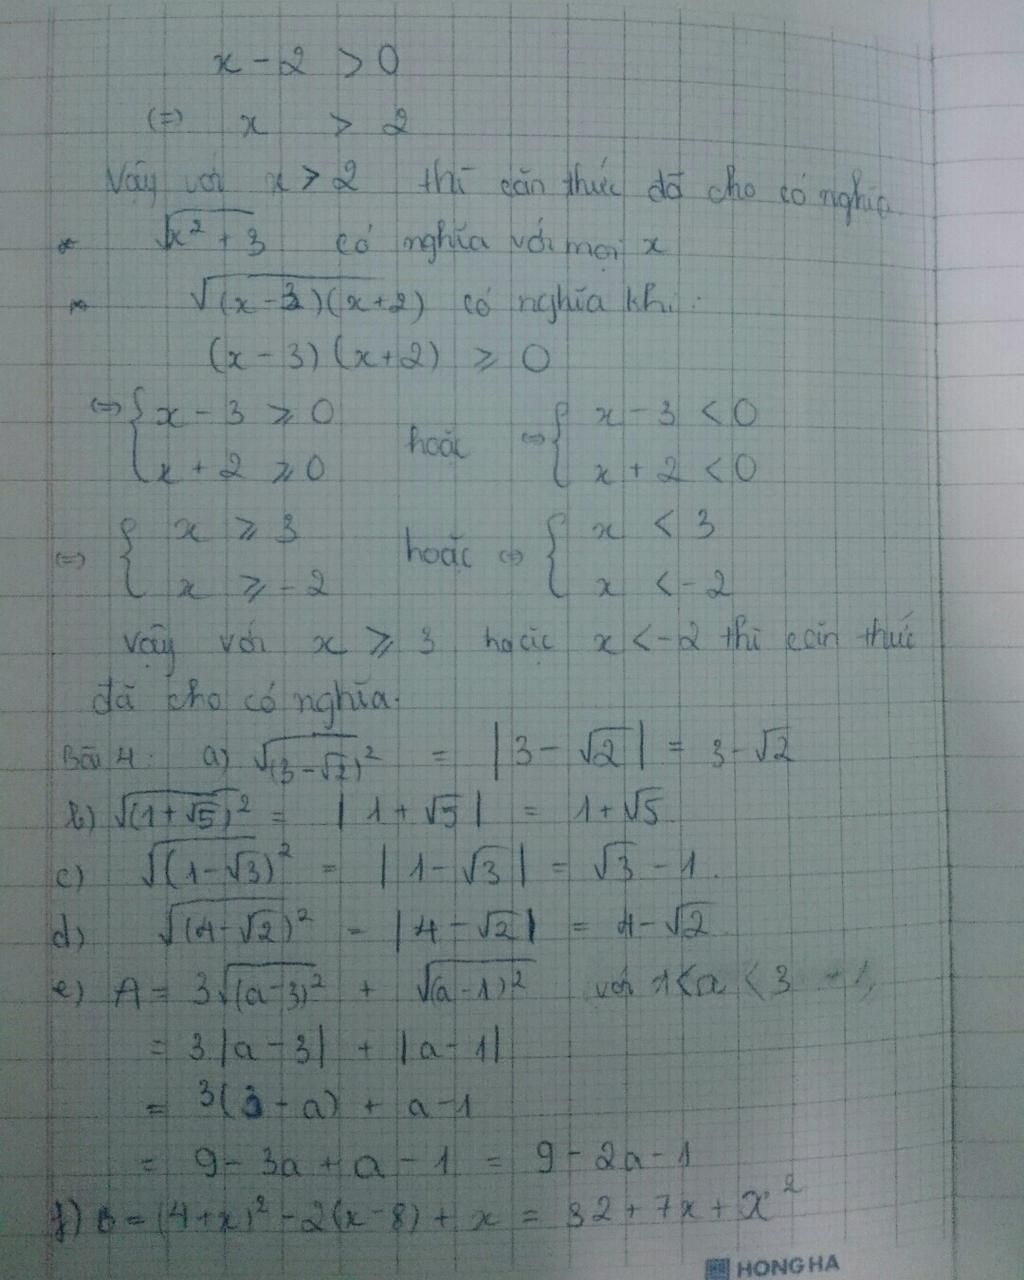 x - 2 > 0
(=) x > 2
Vậy với x > 2 thì căn thức đã cho có nghĩa
* √(x² + 3) có nghĩa với mọi x
* √((x - 3)(x + 2)) có nghĩa khi:
(x - 3)(x + 2) ≥ 0
(=) { x - 3 ≥ 0 hoặc (=) { x - 3 < 0
x + 2 ≥ 0 x + 2 < 0
(=) { x ≥ 3 hoặc (=) { x < 3
x ≥ -2 x < -2
Vậy với x ≥ 3 hoặc x < -2 thì căn thức
đã cho có nghĩa.
Bài 4: a) √(3 - √2)² = |3 - √2| = 3 - √2
b) √(1 + √5)² = |1 + √5| = 1 + √5
c) √(1 - √3)² = |1 - √3| = √3 - 1.
d) √(4 - √2)² = |4 - √2| = 4 - √2
e) A = 3√(a - 3)² + √(a - 1)² với 1 < a < 3
= 3|a - 3| + |a - 1|
= 3(3 - a) + a - 1
= 9 - 3a + a - 1 = 9 - 2a - 1
f) B = (4 + x)² - 2(x - 8) + x = 32 + 7x + x²
HONG HA